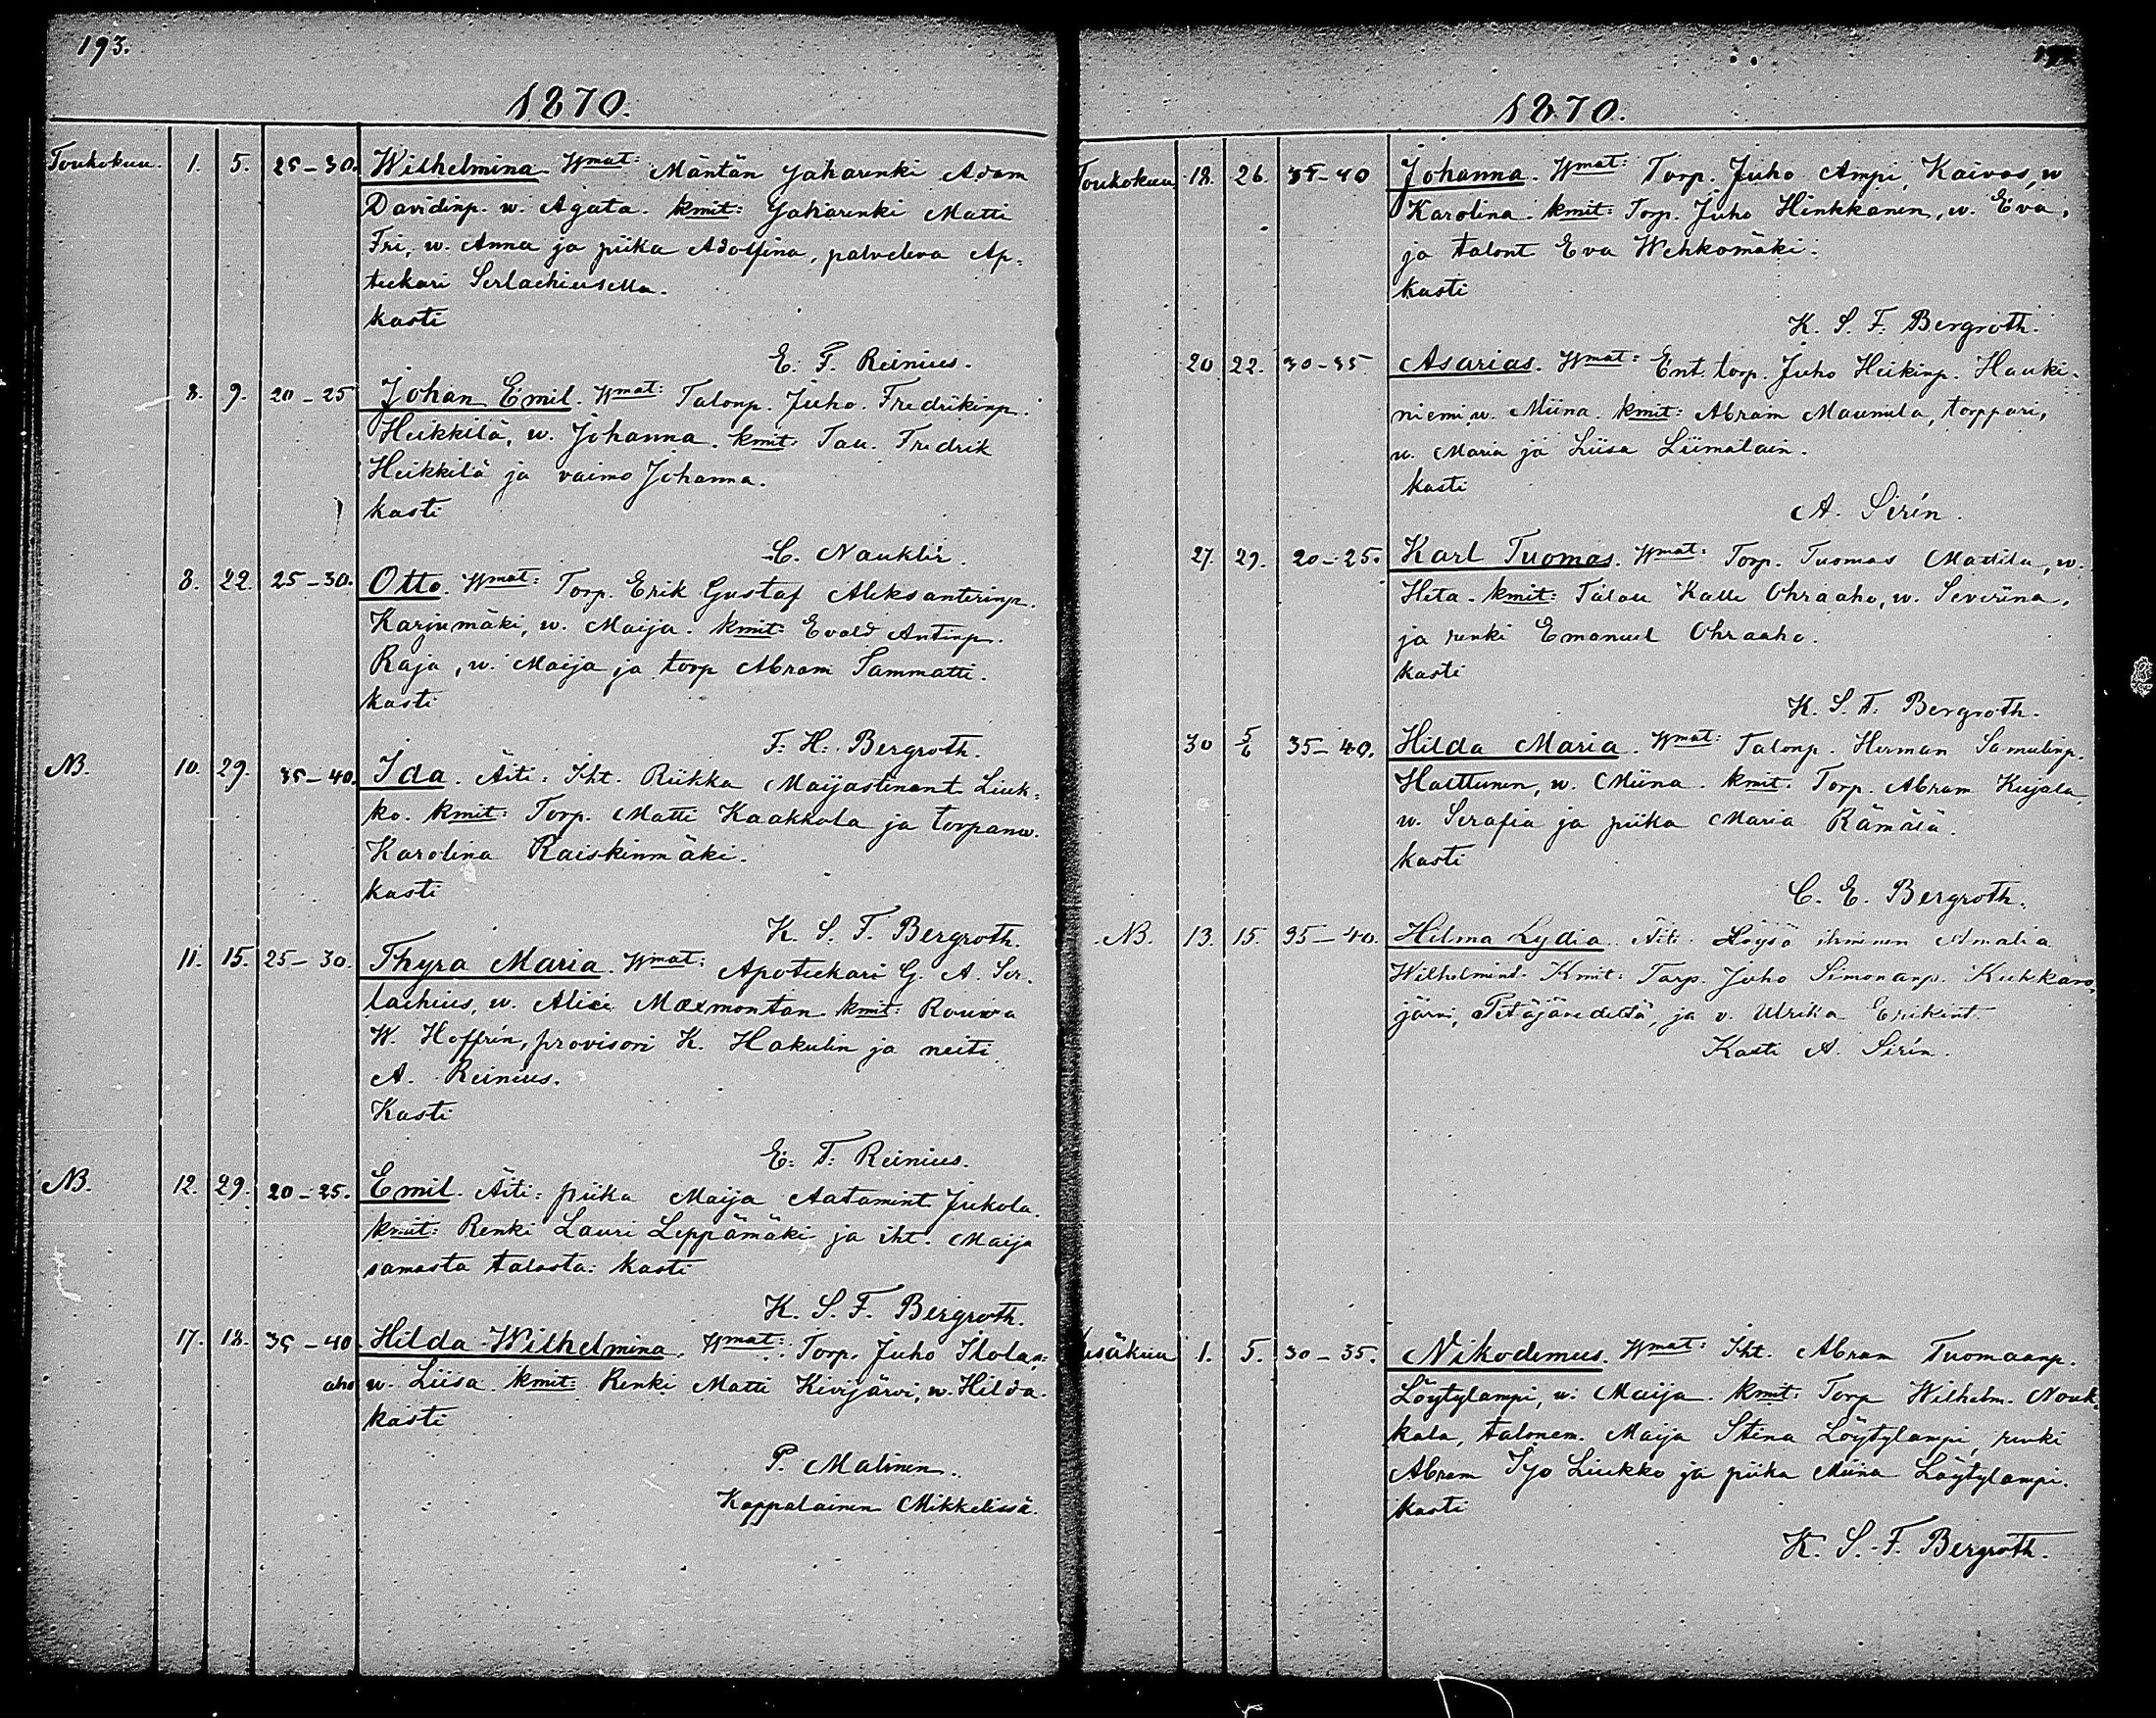 193.
1870.
Toukokuu. 1. 5. 25-30. Wilhelmina. Wmat: Mäntän Jaharenki Adam
Davidinp. w. Agata. kmit: Jaharenki Matti
Fri, w. Anna ja piika Adolfina, palveleva Ap-
teekari Serlachiusella.
kasti
E. F. Reinius.
8. 9. 20-25 Johan Emil. Wmat: Talonp. Juho. Fredrikinp.
Heikkilä, w. Johanna. kmit: Tall. Fredrik
Heikkilä ja vaimo Johanna.
kasti
C. Nauklér.
8. 22. 25-30. Otto. Wmat: Torp. Erik Gustaf Aleksanterinp.
Karjumäki, w. Maija. kmit: Evald Antinp.
Raja, w. Maija ja torp Abram Sammatti.
kasti
F. H. Bergroth.
NB. 10. 29. 35-40. Ida. Äiti: Iht. Riikka Maijastinant. Liuk-
ko. kmit: Torp. Matti Kaakkola ja torpanw.
Karolina Raiskinmäki.
kasti
K. S. F. Bergroth.
11. 15. 25-30. Thyra Maria. Wmat: Apoteekari G. A. Ser-
lachius, w. Alice Maxmontan kmit: Rouwa
W. Hoffrén, provisori K. Hakulin ja neiti
A. Reinius.
Kasti
E. F. Reinius.
NB. 12. 29. 20-25. Emil. Äiti: piika Maija Aatamint Jukola.
kmit: Renki Lauri Leppämäki ja iht. Maija
samasta talosta: kasti
K. S. F. Bergroth.
17. 18. 35-40. Hilda Wilhelmina. Wmat: Torp. Juho Ilolan-
aho w. Liisa. kmit: Renki Matti Kivijärvi, w. Hilda.
kasti
P. Malinen.
Kappalainen Mikkelissä.
1870.
Toukokuu 18. 26. 35-40 Johanna. Wmat: Torp. Juho Ampi, Kaivos, w
Karolina. kmit: Torp. Juho Hinkkanen, w. Eva,
ja talont Eva Wehkomäki.
kasti
K. S. F. Bergroth.
20 22. 30-35. Asarias. Wmat: Ent. torp. Juho Heikinp. Hauki-
niemi w. Miina. kmit: Abram Maunula, torppari,
w. Maria ja Liisa Liimalain.
kasti
A. Sirén.
27. 29. 20-25. Karl Tuomas. Wmat: Torp. Tuomas Mattila, w.
Heta. kmit: Talall Kalle Ohraaho, w. Severiina,
ja renki Emanuel Ohraaho.
kasti
K. S. F. Bergroth.
30 5/6 35-40. Hilda Maria. Wmat: Talonp. Herman Samulinp.
Halttunen, w. Miina. kmit. Torp. Abram Kujala,
w. Serafia ja piika Maria Rämälä.
kasti
C. E. Bergroth.
NB. 13. 15. 35-40. Hilma Lydia. Äiti. Löysä ihminen Amalia
Wilhelmint. Kmit: Torp. Juho Simonanp. Kukkaro-
järvi, Petäjävedeltä, ja v. Ulrika Erikint.
Kasti A. Sirén.
Kesäkuu 1. 5. 30-35. Nikodemus. Wmat: Iht. Abram Tuomaanp.
Löytylampi, w. Maija. kmit: Torp Wilhelm. Nouk-
kala, talonem. Maija Stina Löytylampi, renki
Abram Ijo Liukko ja piika Miina Löytylampi.
kasti
K. S. F. Bergroth.